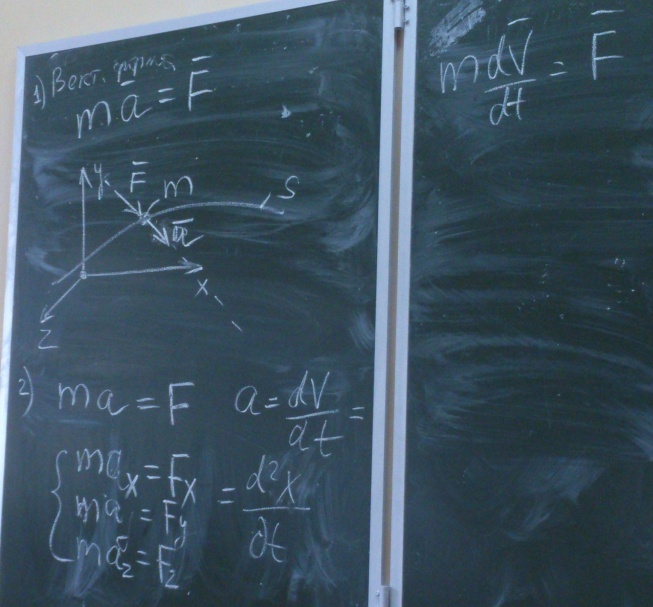 1) Вект. форма
m a̅ = F̅
y F̅ m S
a̅
x
z
2) ma = F a = dV/dt =
{ ma_x = F_x = d²x/dt
ma_y = F_y
ma_z = F_z
m dV̅/dt = F̅